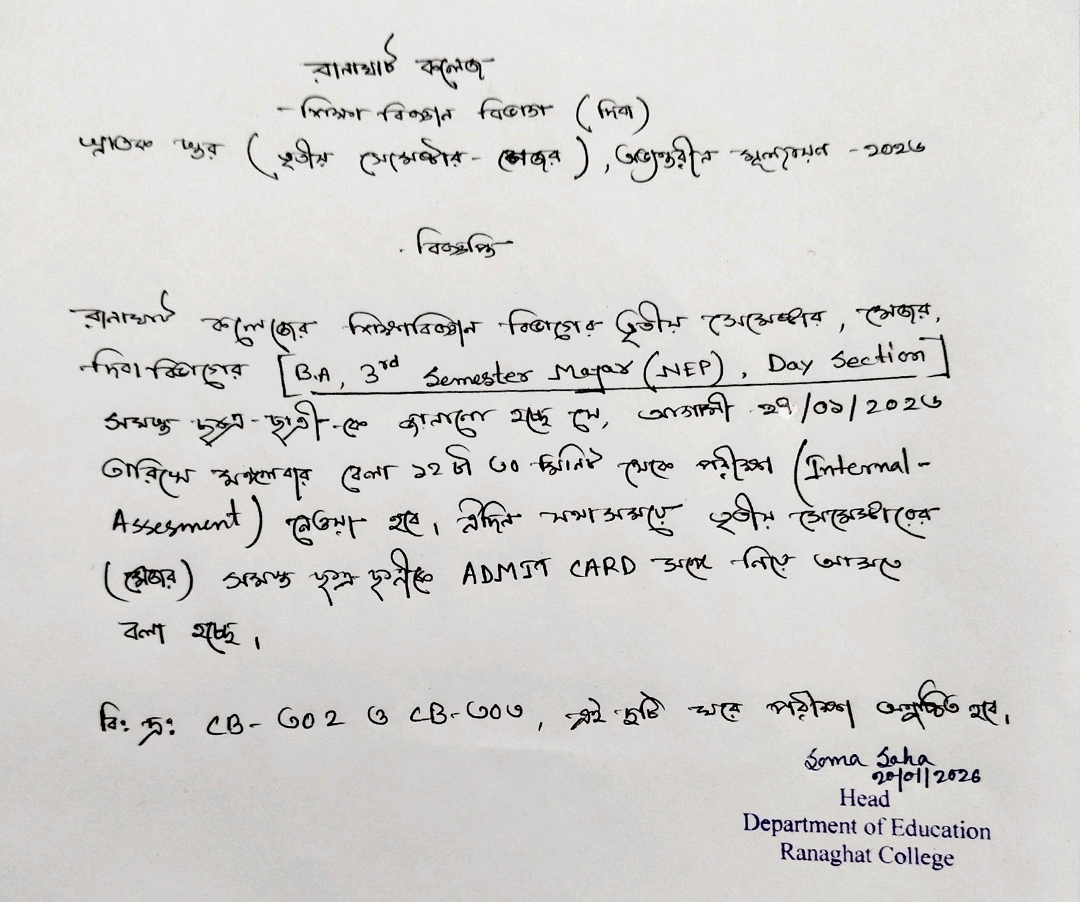 রানাঘাট কলেজ
শিক্ষা বিজ্ঞান বিভাগ (দিবা)
স্নাতক স্তর (তৃতীয় সেমেষ্টার - মেজর), অভ্যন্তরীন মূল্যায়ন - ২০২৬
বিজ্ঞপ্তি
রানাঘাট কলেজের শিক্ষাবিজ্ঞান বিভাগের তৃতীয় সেমেষ্টার, মেজর,
দিবা বিভাগের [B.A, 3rd Semester Major (NEP), Day Section]
সমস্ত ছাত্র-ছাত্রী-কে জানানো হচ্ছে যে, আগামী ২৭/০১/২০২৬
তারিখে মঙ্গলবার বেলা ১২ টা ৩০ মিনিট থেকে পরীক্ষা (Internal-
Assesment) নেওয়া হবে। ঐদিন যথাসময়ে তৃতীয় সেমেষ্টারের
(মেজর) সমস্ত ছাত্র ছাত্রীকে ADMIT CARD সঙ্গে নিয়ে আসতে
বলা হচ্ছে।
বি: দ্র: CB-৩০২ ও CB-৩০৩, এই দুটি ঘরে পরীক্ষা অনুষ্ঠিত হবে।
Soma Saha
20/01/2026
Head
Department of Education
Ranaghat College